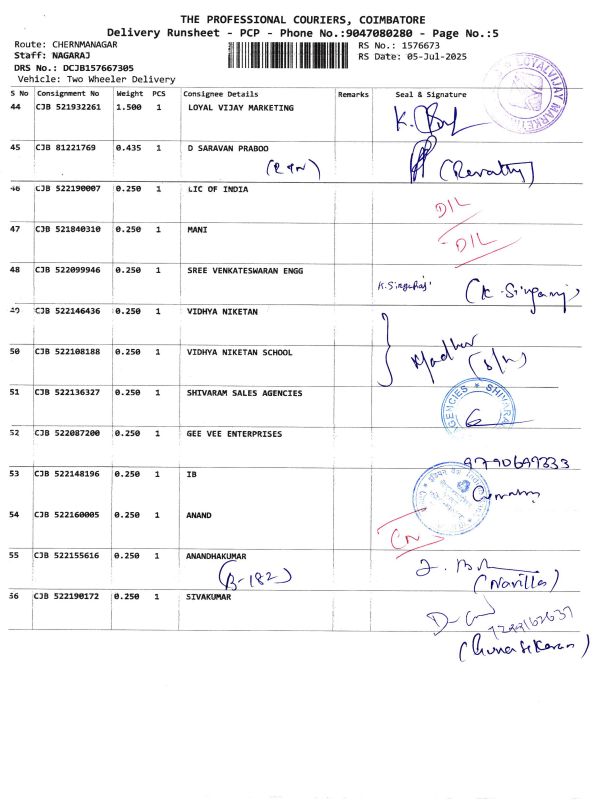 THE PROFESSIONAL COURIERS, COIMBATORE
Delivery Runsheet - PCP - Phone No.:9047080280 - Page No.:5
Route: CHERNMANAGAR RS No.: 1576673
Staff: NAGARAJ RS Date: 05-Jul-2025
DRS No.: DCJB157667305
Vehicle: Two Wheeler Delivery
S No Consignment No Weight PCS Consignee Details Remarks Seal & Signature
44 CJB 521932261 1.500 1 LOYAL VIJAY MARKETING
LOYALVIJAY MARKETING
45 CJB 81221769 0.435 1 D SARAVAN PRABOO
(Revathy)
46 CJB 522190007 0.250 1 LIC OF INDIA
D/L
47 CJB 521840310 0.250 1 MANI
D/L
48 CJB 522099946 0.250 1 SREE VENKATESWARAN ENGG
K. Singaraj (K. Singaraj)
49 CJB 522146436 0.250 1 VIDHYA NIKETAN
50 CJB 522108188 0.250 1 VIDHYA NIKETAN SCHOOL
51 CJB 522136327 0.250 1 SHIVARAM SALES AGENCIES
52 CJB 522087200 0.250 1 GEE VEE ENTERPRISES
9790699333
53 CJB 522148196 0.250 1 IB
54 CJB 522160005 0.250 1 ANAND
CN
55 CJB 522155616 0.250 1 ANANDHAKUMAR
(B-182)
(Navilla)
56 CJB 522190172 0.250 1 SIVAKUMAR
(Gunasekaran)